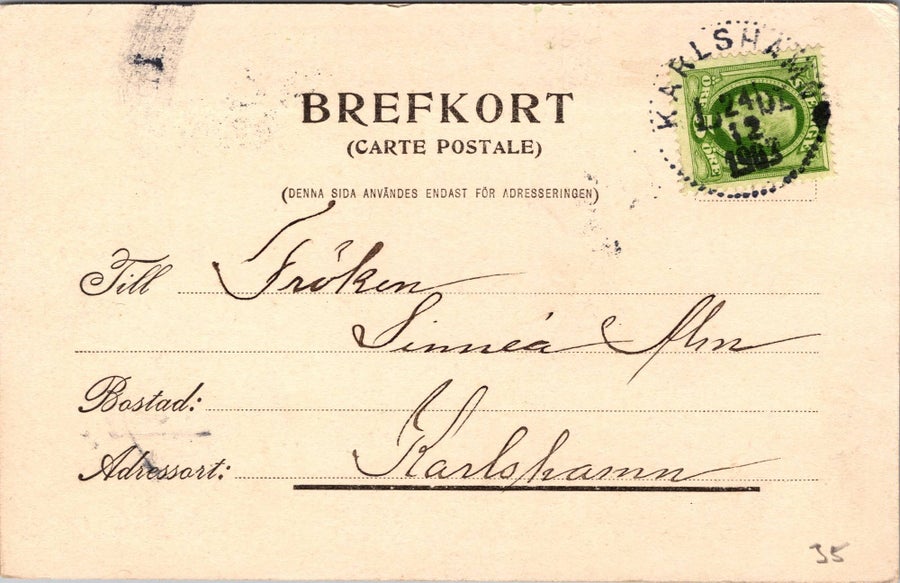 BREFKORT
(CARTE POSTALE)
(DENNA SIDA ANVÄNDES ENDAST FÖR ADRESSERINGEN)
KARLSHAMN
24
12
1903
Till Fröken
Linnéa Alm
Bostad:
Adressort: Karlshamn
35